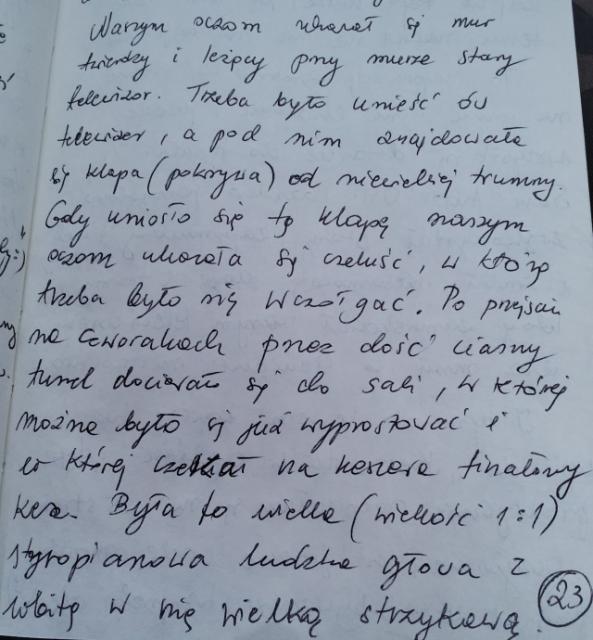 Naszym oczom ukazał się mur
twierdzy i leżący przy murze stary
telewizor. Trzeba było unieść ów
telewizor, a pod nim znajdowała
się klapa (pokrywa) od niewielkiej trumny.
Gdy uniosło się tę klapę naszym
oczom ukazała się czeluść, w którą
trzeba było się wczołgać. Po przejściu
na czworakach przez dość ciasny
tunel docierało się do sali, w której
można było się już wyprostować i
w której czekał na keszera finałowy
kesz. Była to wielka (wielkość 1:1)
styropianowa ludzka głowa z
wbitą w nią wielką strzykawą.
23